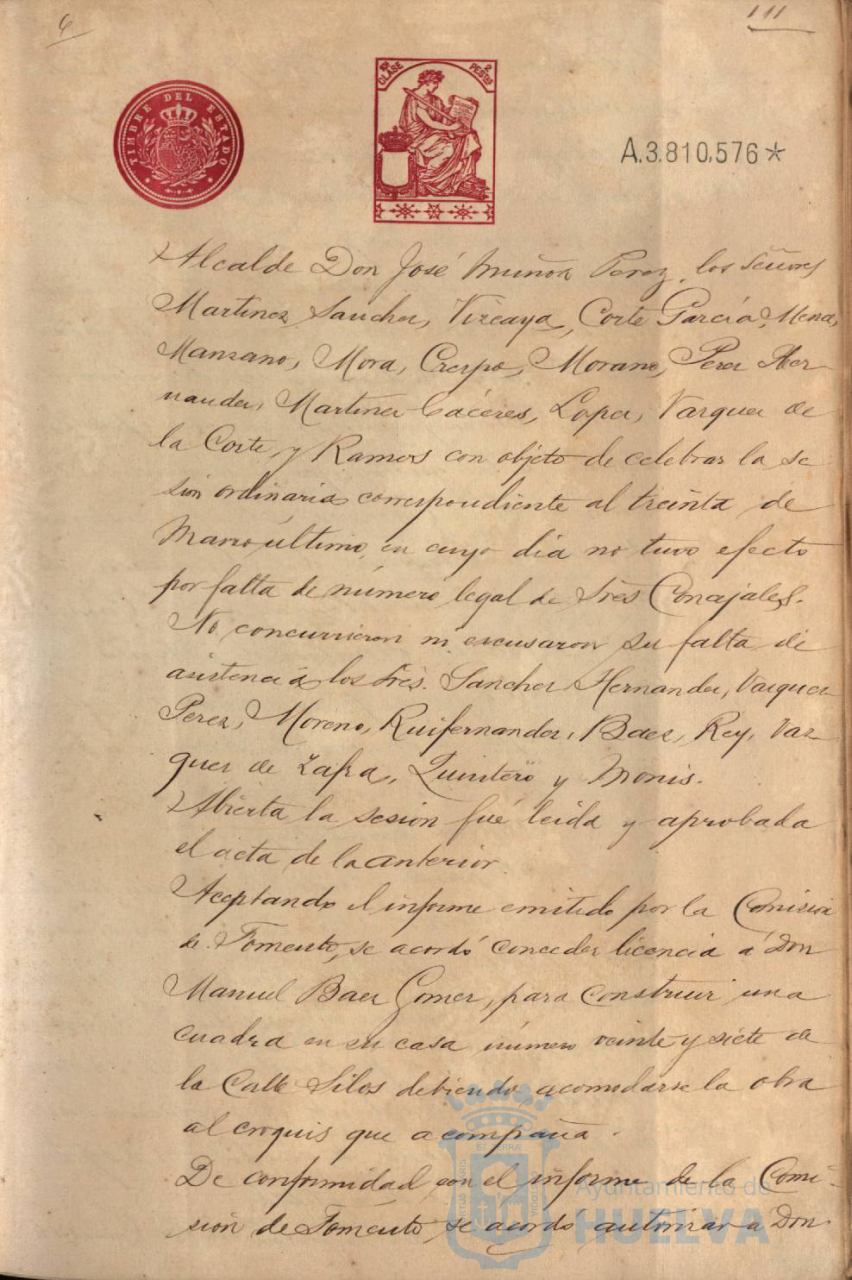 6
111
TIMBRE DEL ESTADO
10ª CLASE
2 PESTAS
A.3.810,576*
Alcalde Don José Muñoz Perez, los Señores
Martinez Sanchez, Vizcaya, Corte Garcia, Mena,
Manzano, Mora, Crespo, Morano, Perez Her-
nandez, Martinez Cáceres, Lopez, Vazquez de
la Corte, y Ramos con objeto de celebrar la se
sión ordinaria correspondiente al treinta de
Marzo último, en cuyo dia no tuvo efecto
por falta de número legal de Sres Concejales.
No concurrieron ni escusaron su falta de
asistencia los Sres. Sanchez Hernandez, Vazquez
Perez, Moreno, Ruifernandez, Baez, Rey, Vaz
quez de Zafra, Quintero y Monis.
Abierta la sesion fué leida y aprobada
el acta de la anterior.
Aceptando el informe emitido por la Comision
de Fomento, se acordó conceder licencia á Don
Manuel Baez Gomez, para construir una
cuadra en su casa número veinte y siete de
la Calle Silos debiendo acomodarse la obra
al croquis que acompaña.
De conformidad con el informe de la Comi-
sión de Fomento, se acordó autorizar a Don
Ayuntamiento de
HUELVA